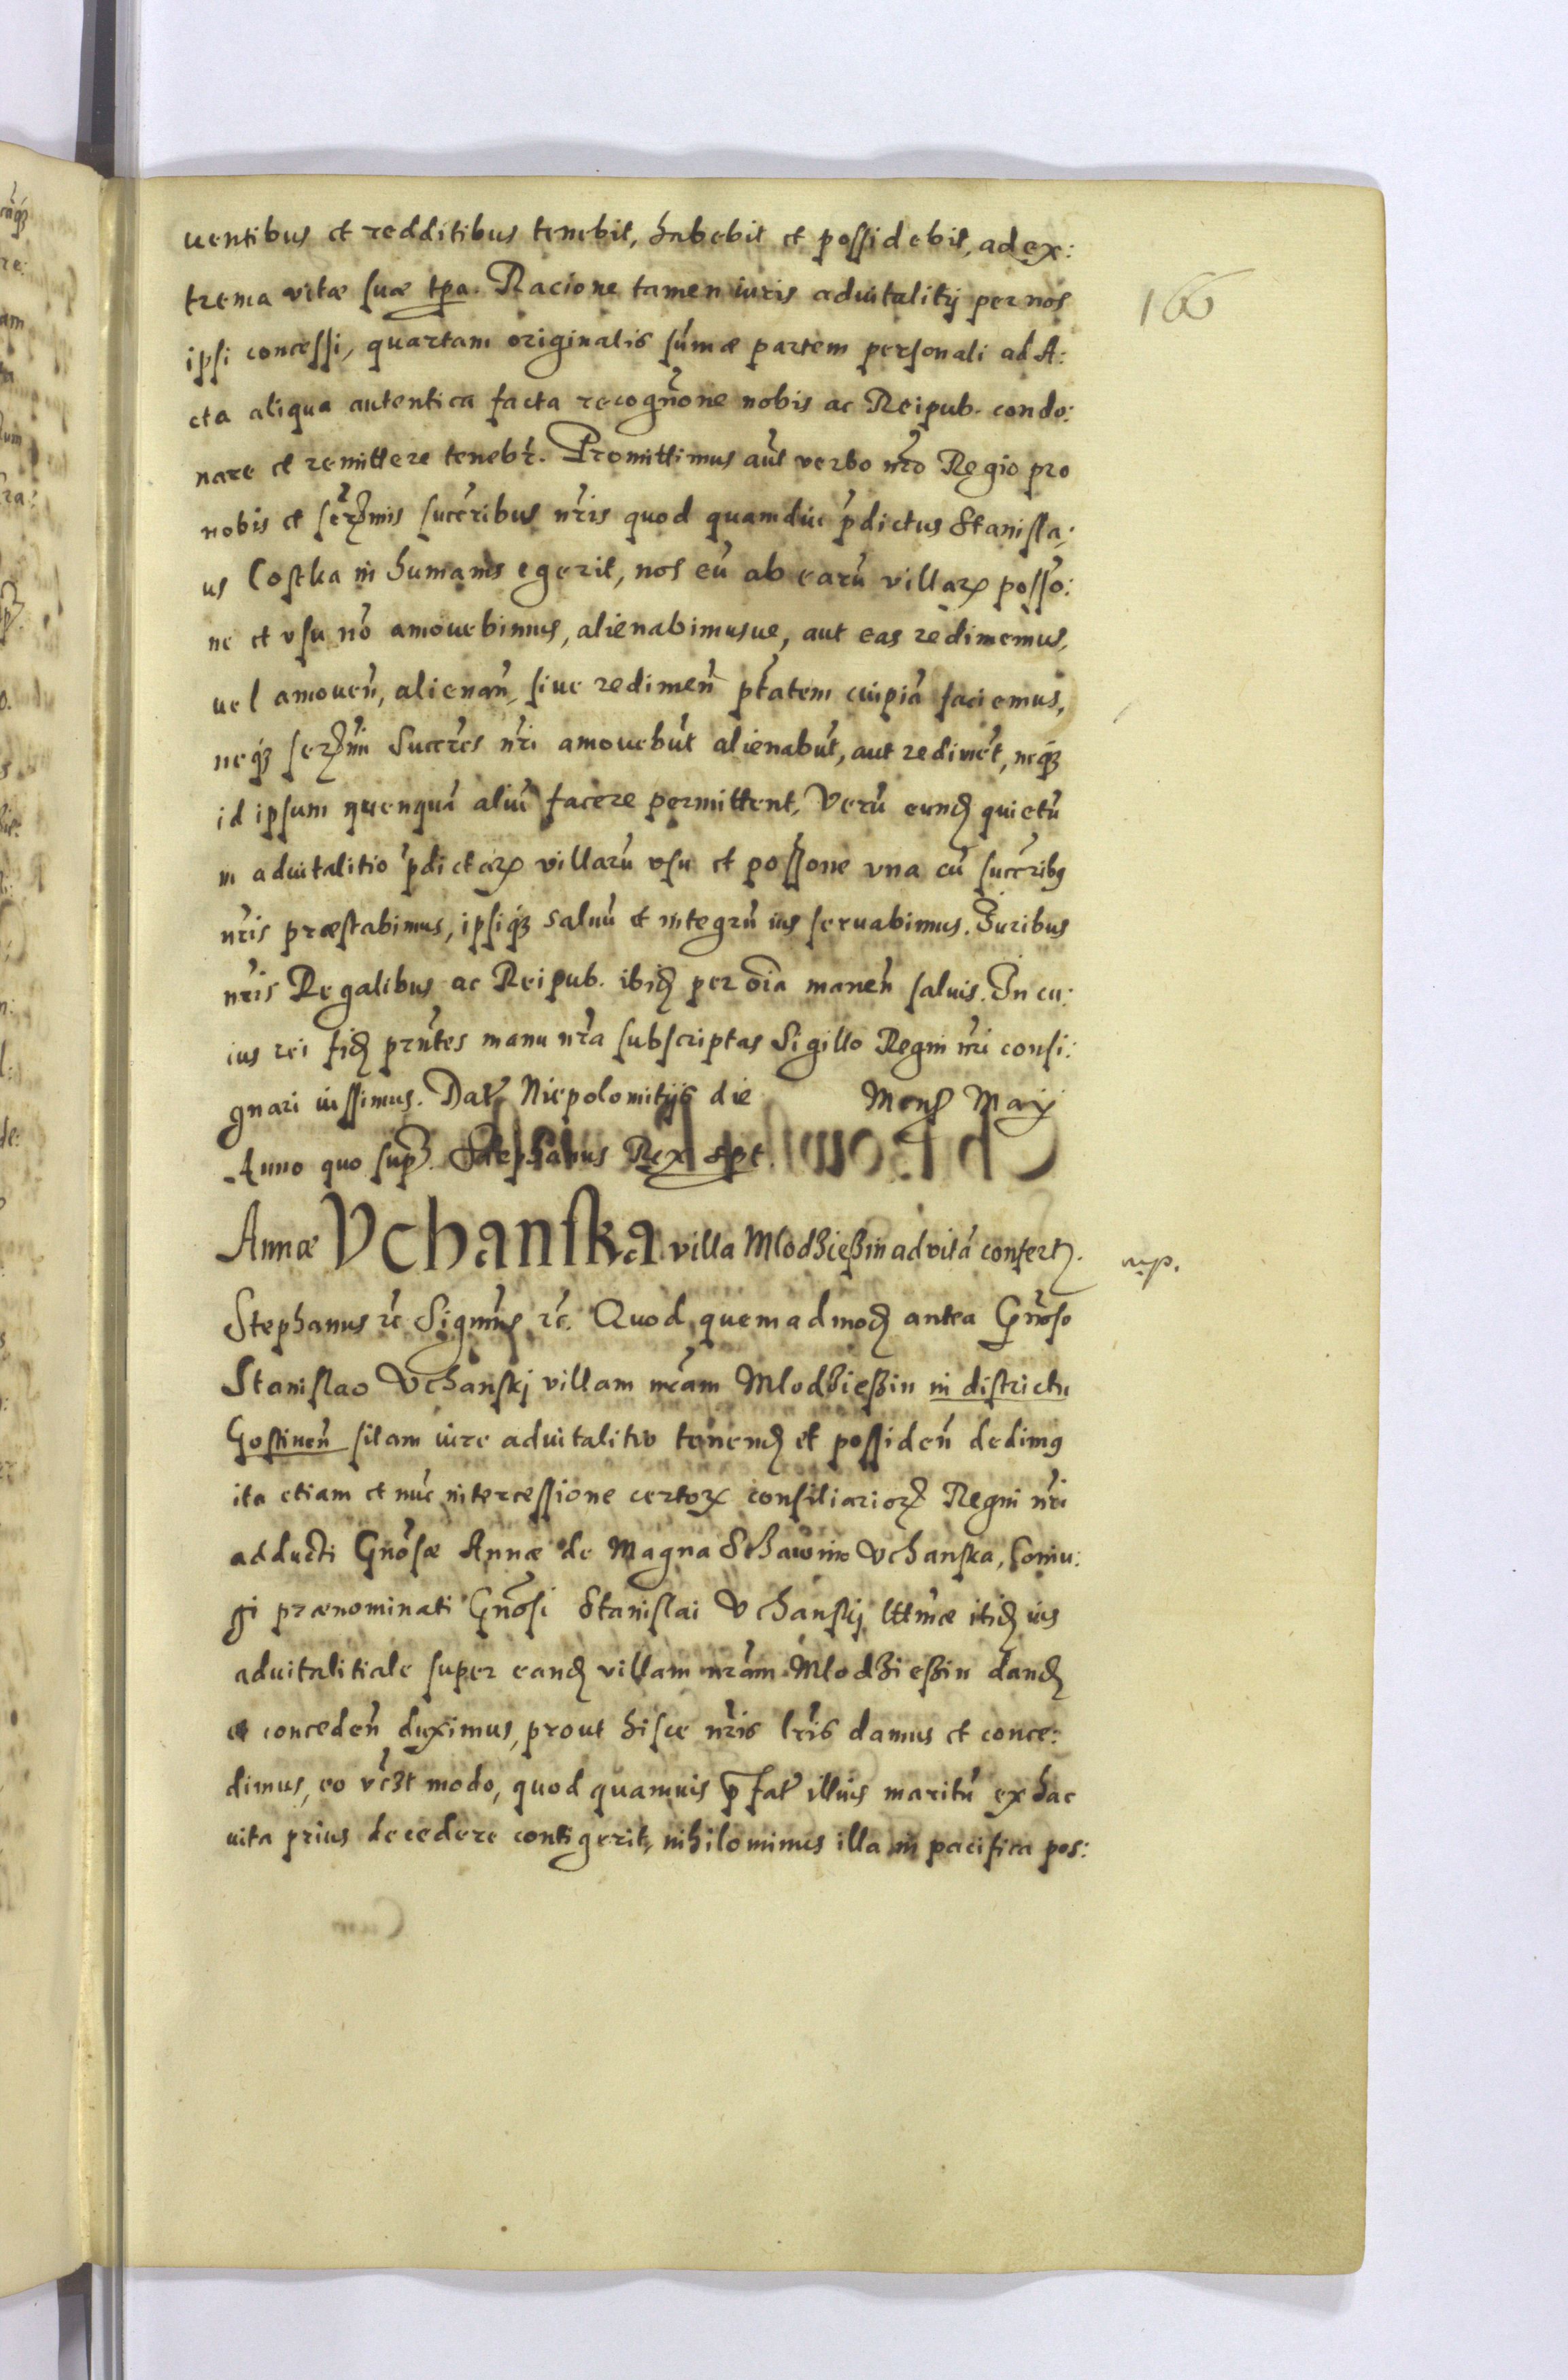 uentibus et redditibus tenebit, habebit et possidebit, ad ex:
166
trema vitæ suæ tpa. Racione tamen iuris aduitalitij per nos
ipsi concessi, quartam originalis sum̃æ partem personali ad A:
cta aliqua autentica facta recognõne nobis ac Reipub. condo:
nare et remittere tenebr̃. Promittimus aũt verbo nr̃o Regio pro
nobis et serꝫmis succr̃ibus nr̃is quod quamdiu p̃dictus Stanisla:
us Costka in humanis egerit, nos eũ ab earũ villarꝝ possõ:
ne et vsu nõ amouebimus, alienabimusue, aut eas redimemus,
uel amoueñ, alienañ, siue redimeñ ptãtem cuipiã faciemus,
neqꝫ serꝫmi Succr̃es nr̃i amouebũt alienabũt, aut redimẽt, neqꝫ
id ipsum quenquã aliũ facere permittent, Verũ eund̃ quietũ
in aduitalitio p̃dictarꝝ villarũ vsu et possõne vna cũ succr̃ibꝰ
nr̃is præstabimus, ipsiqꝫ saluũ et integrũ ius seruabimus. Iuribus
nr̃is Regalibus ac Reipub. ibid̃ per oĩa maneñ saluis. In cu:
ius rei fid̃ prñtes manu nr̃a subscriptas Sigillo Regni nr̃i consi:
gnari iussimus. Dat̃ Niepolomitijs die Mens̃ Maij
Anno quo sup̃. Stephanus Rex sspt.
Annæ Vchanska villa Mlodzieszin ad vitã confertꝫ.
mp.
Stephanus rc̃ Signim̃s rc̃. Quod quemadmod̃ antea Gñoso
Stanislao Vchanskj villam nr̃am Mlodzieszin in districtu
Gostineñ sitam iure aduitalitio tenend̃ et possideñ dedimꝰ
ita etiam et nũc intercessione certorꝝ consiliariorꝝ Regni nr̃i
adducti Gñosæ Annæ de Magna Schawino Vchanska, Coniu:
gi prænominati Gñosi Stanislai Vchanskj lttm̃æ itid̃ ius
aduitalitiale super eand̃ villam nr̃am Mlodzieszin dand̃
et concedeñ duximus, prout hisce nr̃is lr̃is damus et conce:
dimus, eo vcꝫt modo, quod quamuis p̃fat̃ illius maritũ ex hac
uita prius decedere contigerit, nihilominus illa in pacifica pos: